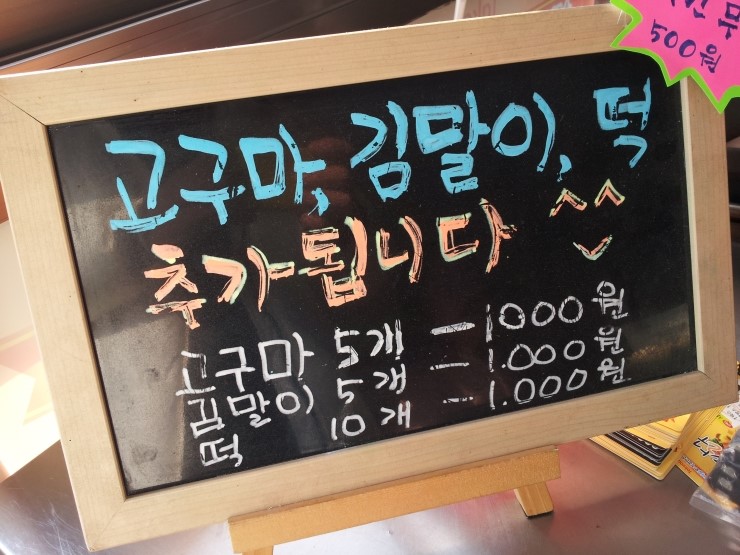 500원
고구마, 김말이, 떡
추가됩니다 ^^
고구마 5개 = 1000원
김말이 5개 = 1.000원
떡 10개 = 1.000원